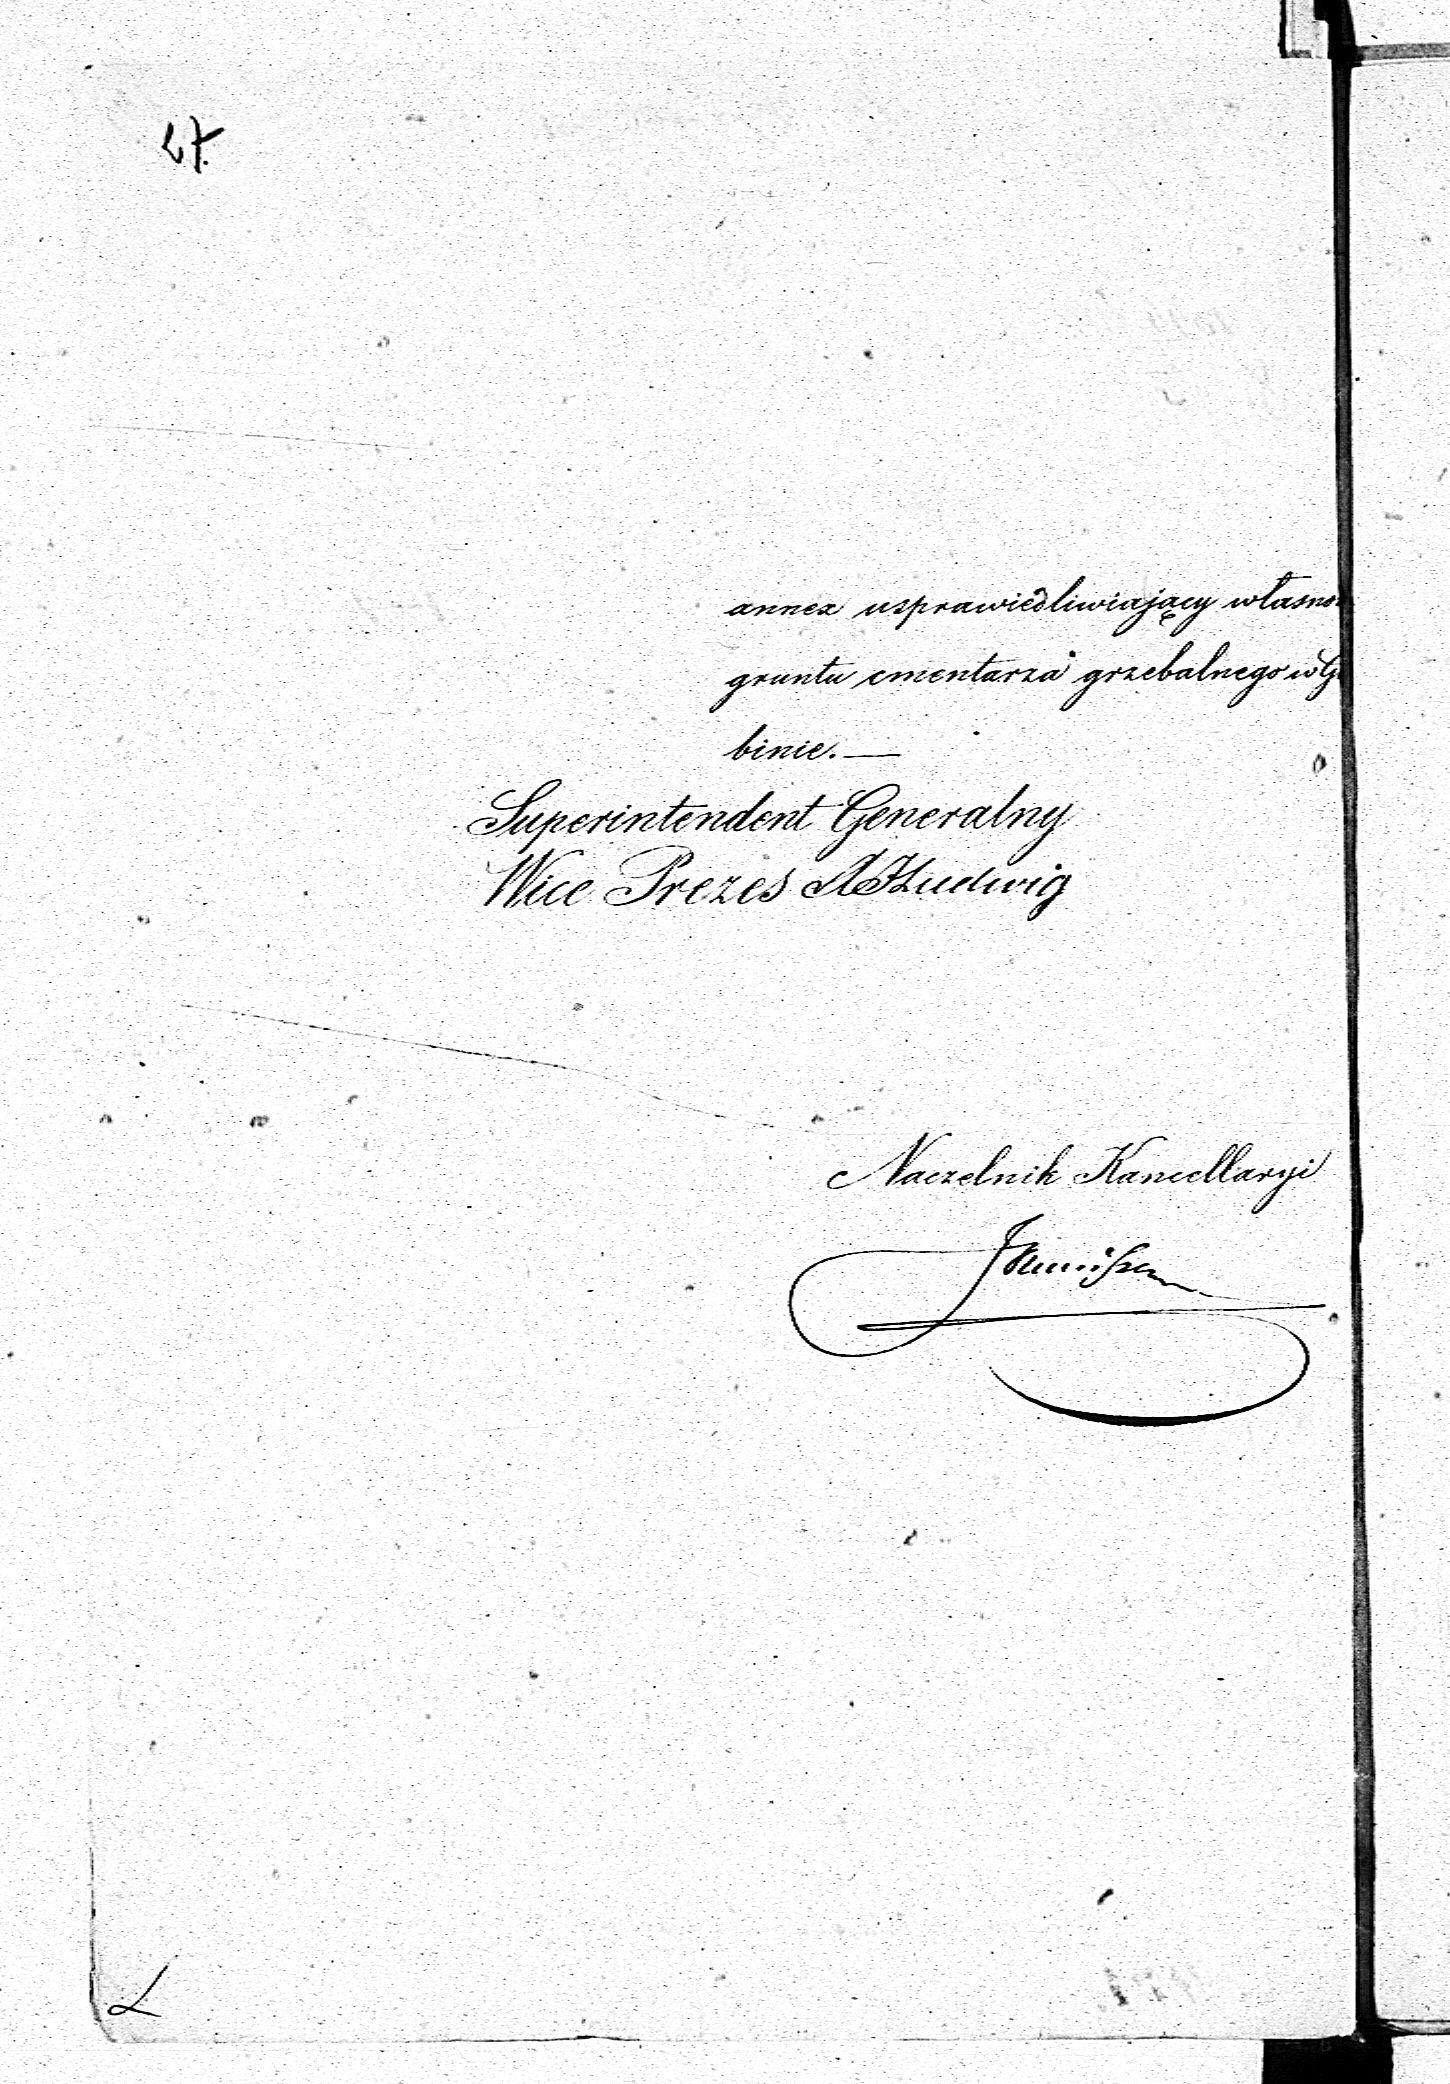 27.
annex usprawiedliwiający własno
gruntu cmentarza grzebalnego w G
binie. —
Superintendent Generalny
Wice Prezes Ludwig
Naczelnik Kancellaryi